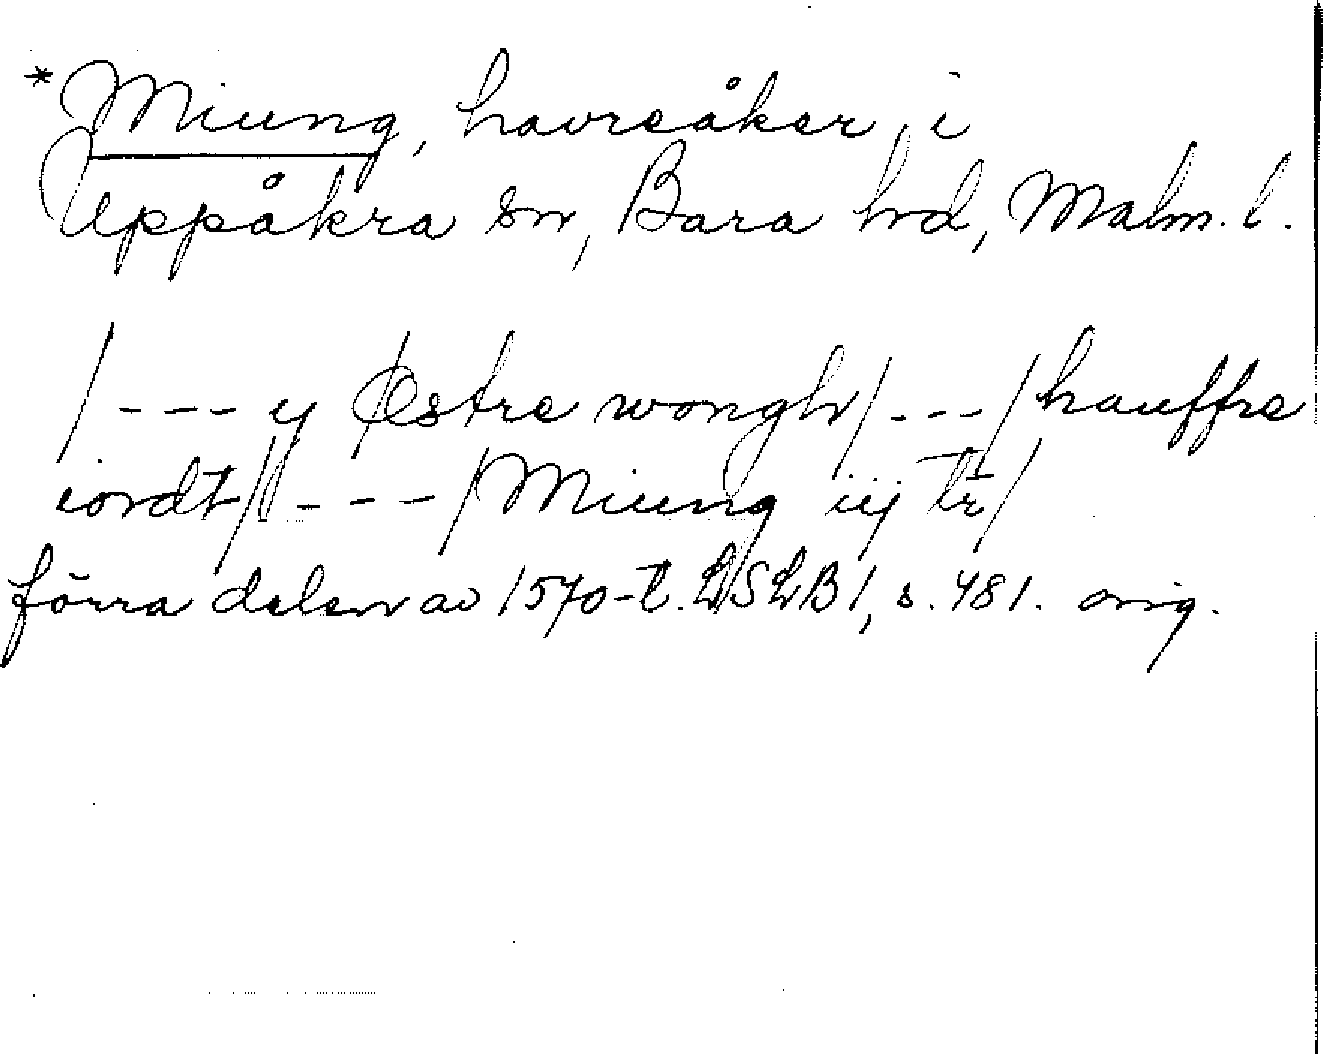 *Miung, havreåker, i
Uppåkra sn, Bara hd, Malm. l.
/---y Østre wongh/---/hauffre
iordt/---/Miung iij tr/
förra delen av 1570-t. LSLB1, s. 481. orig.